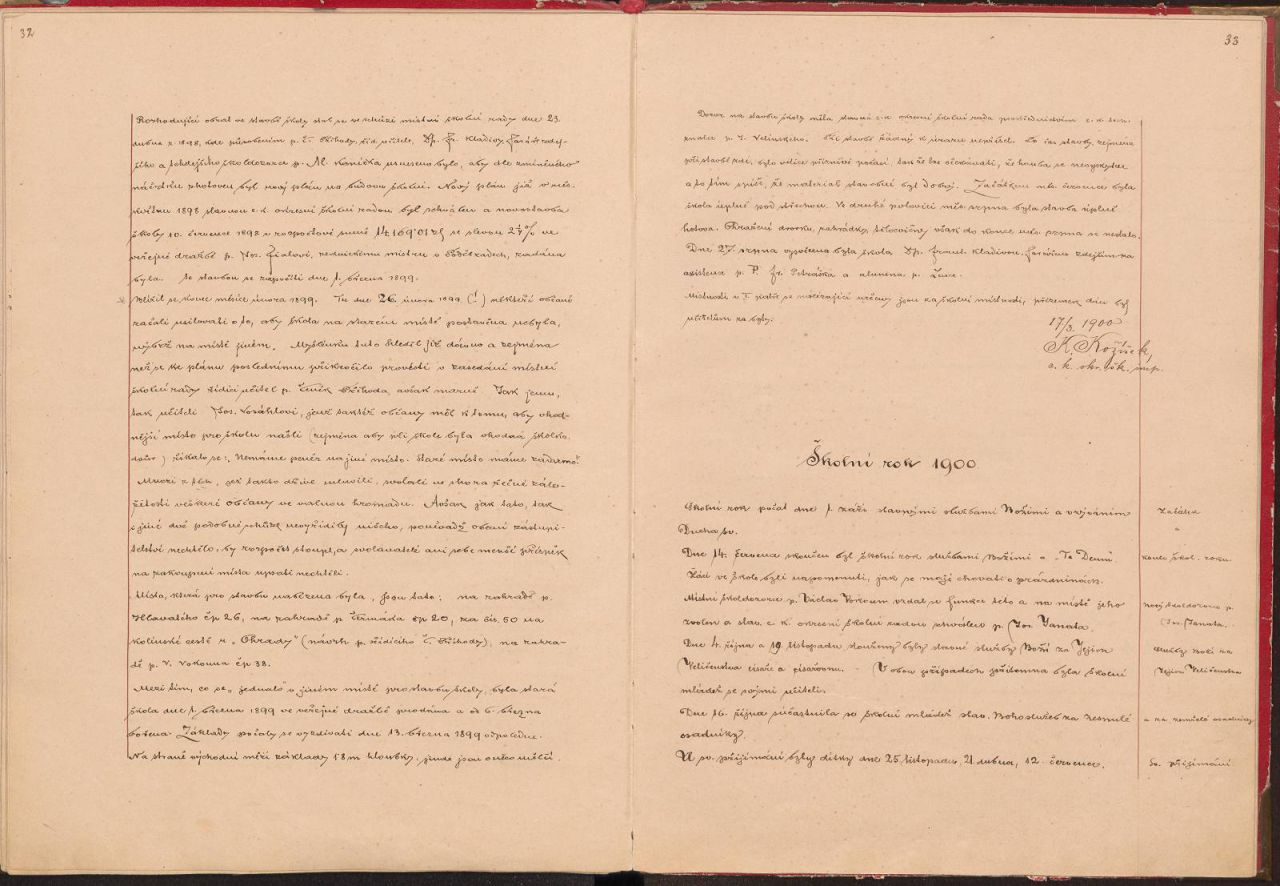 32
Rozhodující obrat ve stavbě školy stal se ve schůzi místní školní rady dne 23.
dubna r. 1898, kde působením p. Č. Příhody, říd. učitele, Dp. Fr. Kladivy, faráře zdej-
šího a tehdejšího škol. dozorce p. M. Koníčka usneseno bylo, aby dle zmíněného
náčrtku zhotoven byl nový plán na budovu školní. Nový plán již v měs.
květnu 1898 slavnou c. k. okresní školní radou byl schválen a novostavba
školy 10. července 1898 v rozpočtové sumě se slevou ve
veřejné dražbě p. Jos. Fialovi, zednickému mistru v zadána
byla. Se stavbou se započíti dne 1. března 1899.
Blížil se konec měsíce února 1899. Tu dne 26. února 1899 (!) někteří občané
začali usilovati o to, aby škola na starém místě postavena nebyla,
nýbrž na místě jiném. Myšlénku tuto hleděl již dávno a zejména
než se ke plánu poslednímu přikročilo provésti v zasedání místní
školní rady řídící učitel p. Čeněk Příhoda, avšak marně. Jak jemu,
tak učiteli Jos. Vosáhlovi, jenž taktéž občany měl k tomu, aby vhod-
nější místo pro školu našli (zejména aby při škole byla vhodná školka
) říkalo se: „Nemáme peněz na jiné místo. Staré místo máme zadarmo.“
Mnozí z těch, jež takto dříve mluvili, svolali ve skoro řečné zále-
žitosti veškeré občany ve valnou hromadu. Avšak jak tato, tak
i jiné dvě podobné schůze nevyřídily ničeho, poněvadž obecní zastupi-
telstvo nechtělo, by rozpočet stoupl, a svolavatelé ani sebe menší příspěvek
na zakoupení místa upsati nechtěli.
Místa, která pro stavbu nabízena byla, jsou tato: na zahradě p.
Hlaváčka čp 26, na zahradě p. Čermáka čp 20, za čís. 50 na
kolínské cestě u „Ohrady“ (návrh p. řídícího Č. Příhody), na zahra-
dě p. V. Vokouna čp 38.
Mezi tím, co se „jednalo“ o jiném místě pro stavbu školy, byla stará
škola dne 1. března 1899 ve veřejné dražbě prodána a od 6. března
bořena. Základy počaly se vyzdívati dne 13. března 1899 odpoledne.
Na straně východní měří základy 1·8 m hloubky, jinde jsou o něco mělčí.
33
Dozor na stavbu školy měla slavná c. k. okresní školní rada prostřednictvím c. k. tech-
nika p. J. Velínského. Při stavbě žádný k úrazu nepřišel. Po čas stavby, zejména
při stavbě zdí, bylo velice příznivé počasí, tak že lze očekávati, že houba se neobjeví
a to tím spíše, že materiál stavební byl dobrý. Začátkem měs. července byla
škola úplně pod střechou. Ve druhé polovici měs. srpna byla stavba úplně
hotova. Ohražení dvorku, zahrádky, tělocvičny však do konce měs. srpna se nestalo.
Dne 27. srpna vysvěcena byla škola Dp. Frant. Kladivou, farářem zdejším za
asistence p. P. Fr. Petráčka a alumna p.
Místnosti v I. patře se nalézající určeny jsou za školní místnosti, přízemek dán byl
učitelům za byty.
17/3. 1900
K. Kožíšek,
c. k. okr. šk. insp.
Školní rok 1900
Školní rok počal dne 1. září slavnými službami Božími a vzýváním
Ducha sv.
Začátek
Dne 14. července skončen byl školní rok službami Božími a „Te Deum“.
konec škol. roku.
Žáci ve škole byli napomenuti, jak se mají chovati o prázdninách.
Místní školdozorce p. Václav Vokoun vzdal se funkce této a na místě jeho
nový školdozorce p.
zvolen a slav. c. k. okresní školní radou schválen p. Jos. Janata.
Jos. Janata.
Dne 4. října a 19. listopadu slouženy byly slavné služby Boží za Jejich
služby Boží za
Veličenstva císaře a císařovnu. – V obou případech přítomna byla školní
Jejich Veličenstva
mládež se svými učiteli.
Dne 16. října súčastnila se školní mládež slav. Bohoslužeb za zesnulé
a za zemřelé osadníky
osadníky.
U sv. přijímání byly dítky dne 25. listopadu, 21. dubna, 12. července.
Sv. přijímání